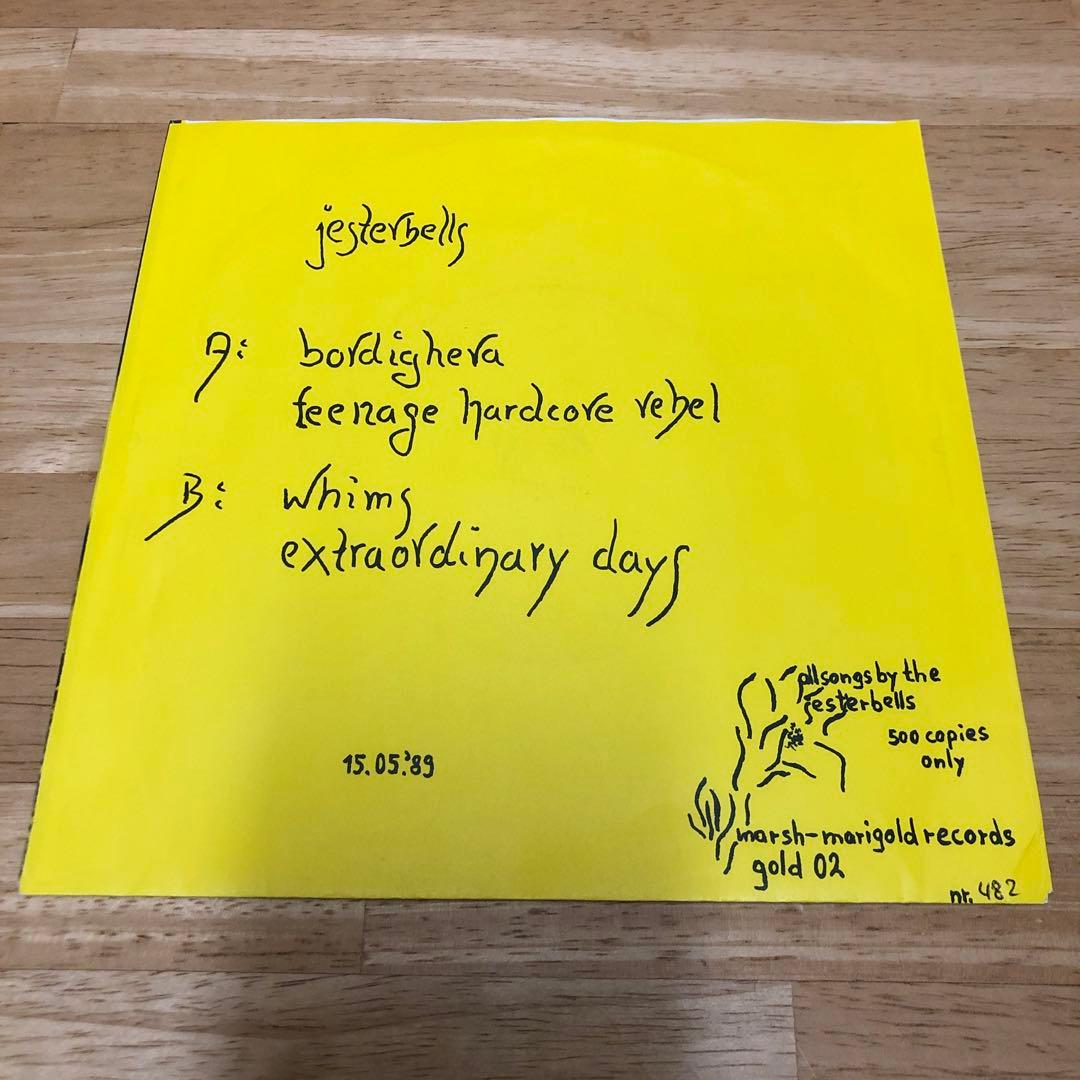 jesterbells
A: bordighera
teenage hardcore rebel
B: whims
extraordinary days
15.05.'89
all songs by the
jesterbells
500 copies
only
marsh-marigold records
gold 02
nr. 482